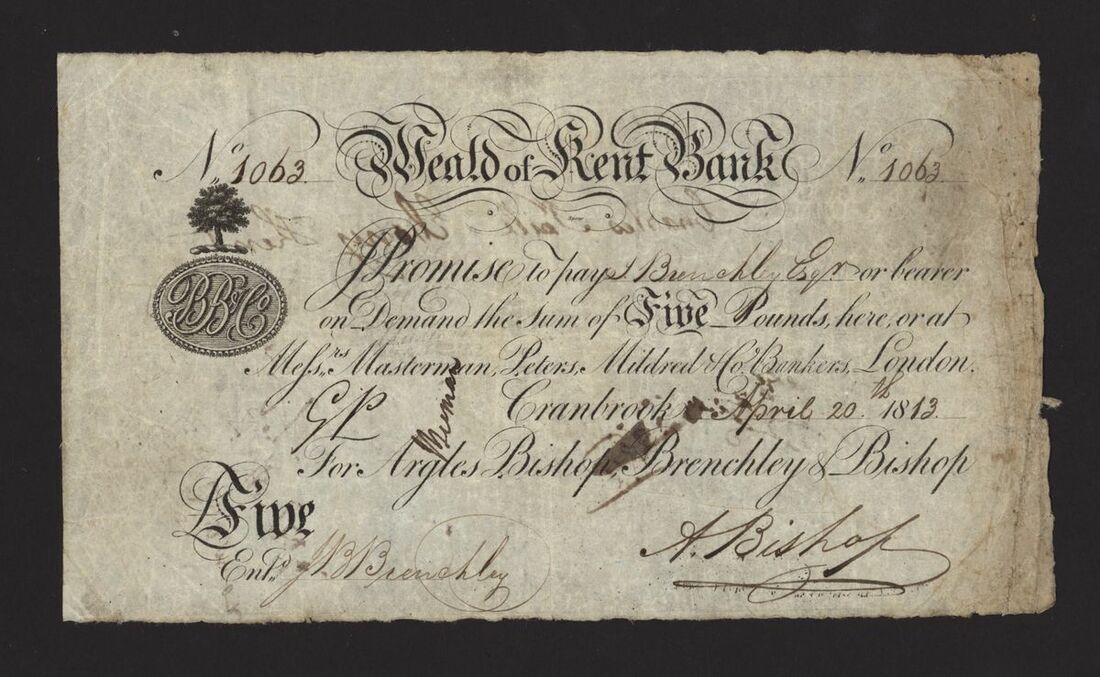 No. 1063 Weald of Kent Bank No. 1063
BB&Co
I Promise to pay J Brenchley Esqr. or bearer
on Demand the Sum of Five Pounds, here, or at
Messrs. Masterman, Peters, Mildred & Co. Bankers, London.
Cranbrook April 20th 1813
For Argles Bishop Brenchley & Bishop
£Five
Entd. J B Brenchley
A. Bishop